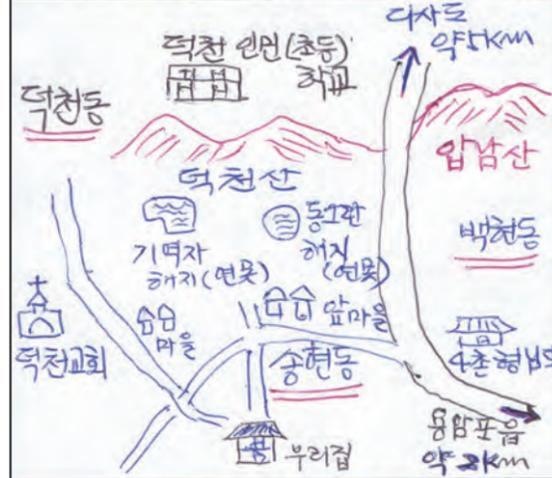 다사도
약 5km
덕천 인민(초등)
학교
덕천동
압남산
덕천산
동그란
해지
(연못)
기역자
해지(연못)
백현동
마을
앞마을
덕천교회
송현동
4촌형님댁
우리집
용암포읍
약 2km